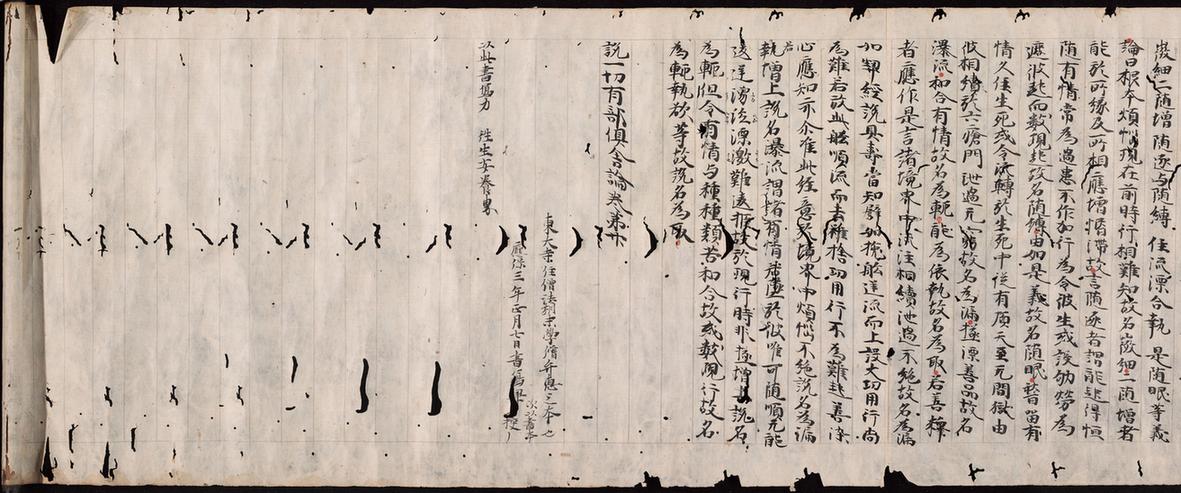 微細二随増 随逐与随縛 住流漂合執 是随眠等義
論曰根本煩惱現在前時行相難知故名微細二随増者
能於所縁及所相應増惛滞故言随逐者謂能起得恒
随有情常為過患不作加行為令彼生或設劬勞為
遮彼起而數現起故名随縛由如是義故名随眠稽留有
情久住生死或令流轉於生死中従有頂天至无間獄由
彼相續於六瘡門泄過无窮故名為漏極漂善品故名
瀑流和合有情故名為軛能為依執故名為取若善釋
者應作是言諸境界中流注相續泄過不絶故名為漏
如契經說具壽當知譬如挽舩逆流而上設大功用行尚
為難若放此舩順流而去雖捨功用行不為難起善染
心應知亦尓准此經意於境界中煩惱不絶說名為漏
若執増上說名瀑流謂諸有情若墜於彼唯可随順无能
違逆涌泛漂激難違拒故於現行時非極増上說名
為軛但令有情与種種類苦和合故或數現行故名
為軛執欲等故說名為取
說一切有部俱舍論巻第廿
以此書寫力 徃生安養界
東大寺住僧法相末學僧弁恵之本也
應保三年正月七日書寫畢